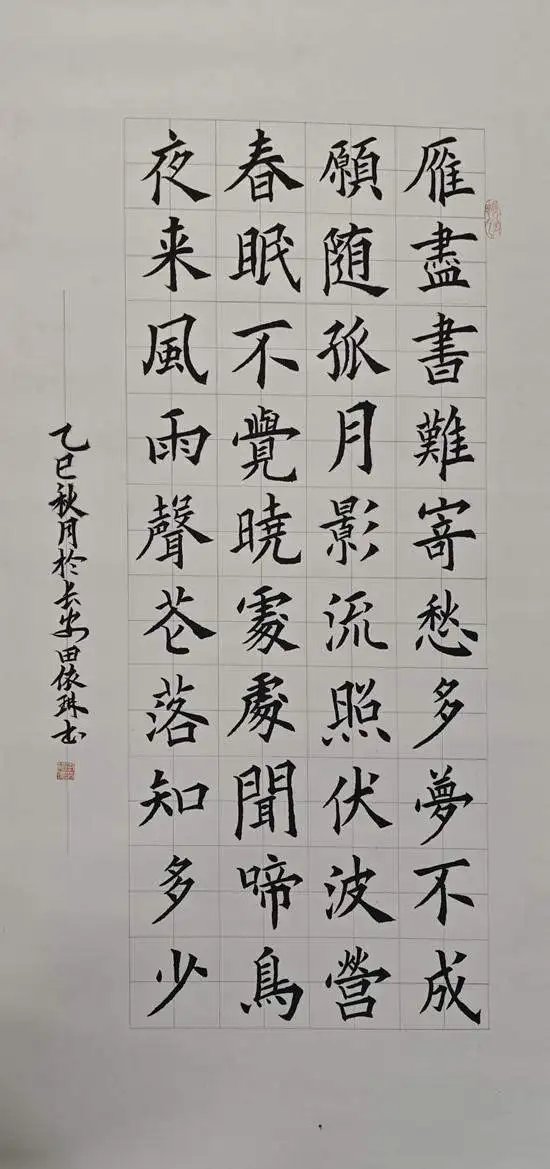 雁盡書難寄愁多夢不成
願随孤月影流照伏波營
春眠不覺曉處處聞啼鳥
夜来風雨聲花落知多少
乙巳秋月於长安田依琳书